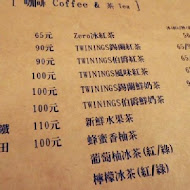 [ 咖啡 Coffee & 茶 Tea ]
65元 Zero冰紅茶
90元 TWININGS錫蘭紅茶
90元 TWININGS伯爵紅茶
100元 TWININGS風味紅茶
90元 TWININGS錫蘭鮮奶茶
100元 TWININGS伯爵鮮奶茶
鐵 110元 新鮮水果茶
田 100元 蜂蜜香柚茶
葡萄柚冰茶(紅/綠)
檸檬冰茶(紅/綠)